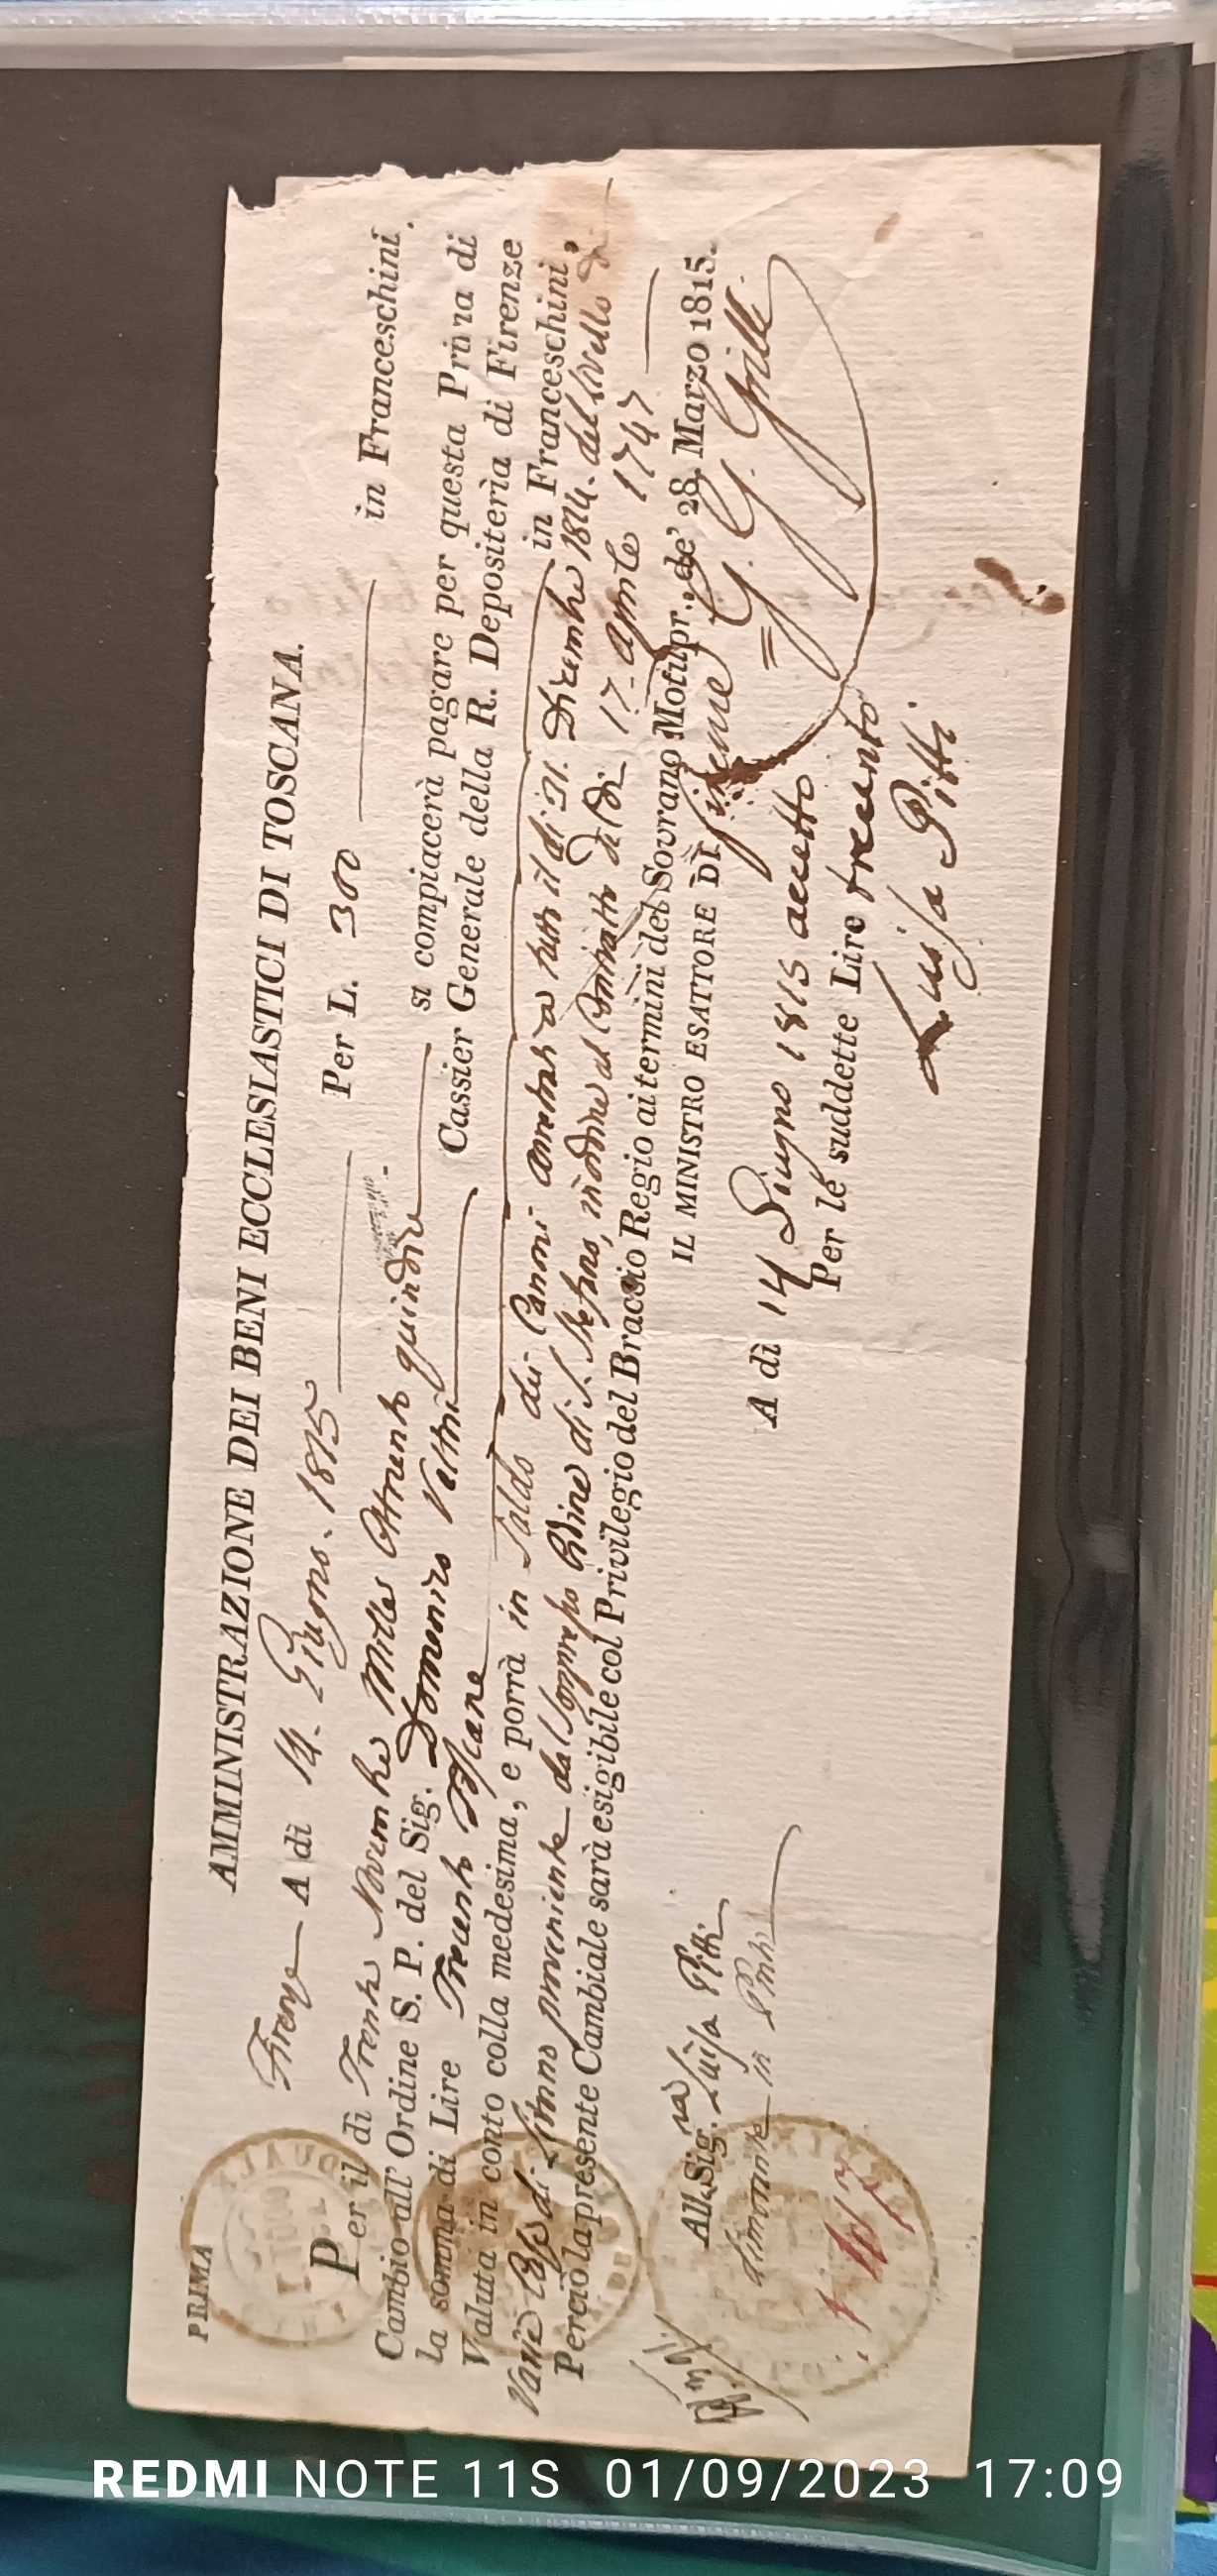 PRIMA
AMMINISTRAZIONE DEI BENI ECCLESIASTICI DI TOSCANA.
Firenze A dì 14. Giugno. 1815 Per L. 300 in Franceschini.
Per il dì Trenta Novembre Mille Ottocento quindici si compiacerà pagare per questa Prima di
Cambio all' Ordine S. P. del Sig. Domenico Veltri Cassier Generale della R. Depositerìa di Firenze
la somma di Lire Trecento Toscane in Franceschini,
Valuta in conto colla medesima, e porrà in Saldo dei Canoni arretrati a tutto il dì 31. Dicembre 1814. del Livello di
Varie Case di proveniente dal Soppresso Ordine di S. Stefano, in ordine al Contratto de dì 17. Aprile 1747
Perciò la presente Cambiale sarà esigibile col Privilegio del Braccio Regio ai termini del Sovrano Motupr. de' 28. Marzo 1815.
IL MINISTRO ESATTORE DI Firenze
All Sig.ra Luisa Pitti
dimorante in
A dì 14 Giugno 1815 accetto
Per le suddette Lire trecento
Luisa Pitti
REDMI NOTE 11S 01/09/2023 17:09